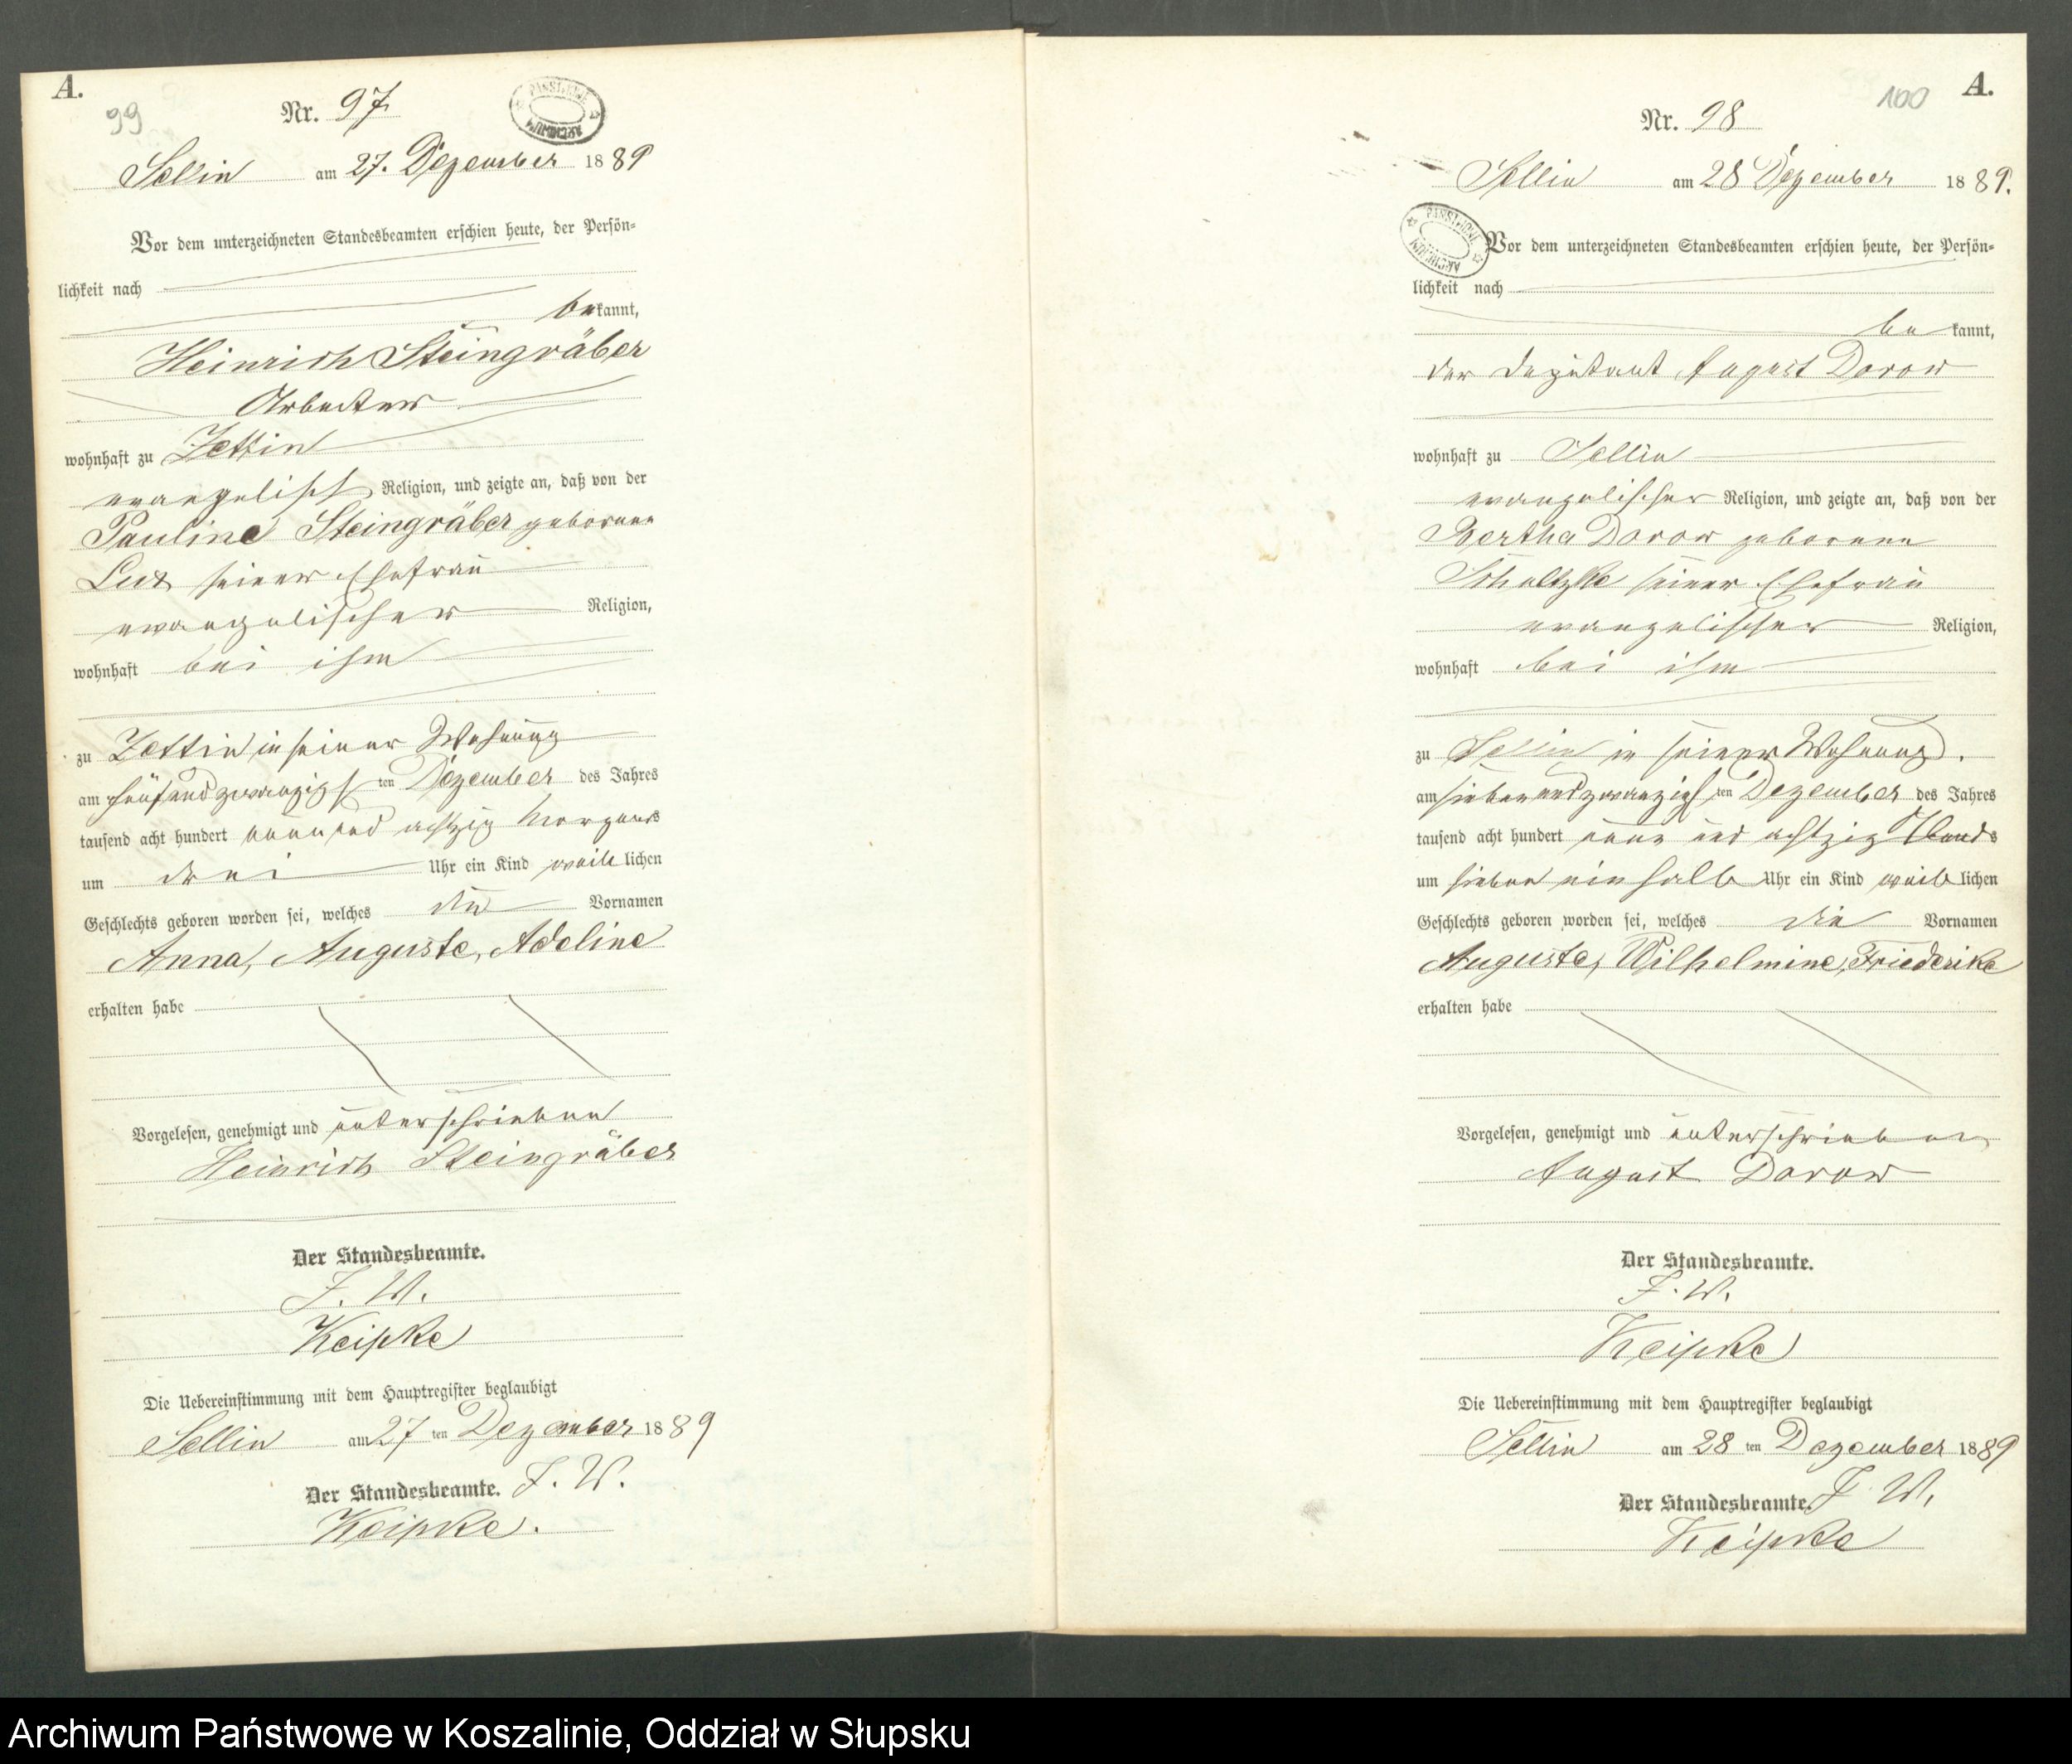 A.
99
Nr. 97
Sellin am 27. Dezember 1889
Vor dem unterzeichneten Standesbeamten erschien heute, der Persön-
lichkeit nach
bekannt,
Heinrich Steingräber
Arbeiter
wohnhaft zu Zettin
evangelisch Religion, und zeigte an, daß von der
Pauline Steingräber geborenen
seiner Ehefrau
evangelischer Religion,
wohnhaft bei ihm
zu Zettin in seiner Wohnung
am fünfundzwanzigsten Dezember des Jahres
tausend acht hundert neunund achtzig Morgens
um drei Uhr ein Kind weiblichen
Geschlechts geboren worden sei, welches die Vornamen
Anna, Auguste, Adeline
erhalten habe
Vorgelesen, genehmigt und unterschrieben
Heinrich Steingräber
Der Standesbeamte.
J. W.
Keipke
Die Uebereinstimmung mit dem Hauptregister beglaubigt
Sellin am 27 ten Dezember 1889
Der Standesbeamte. J. W.
Keipke.
100
A.
Nr. 98
Sellin am 28 Dezember 1889.
Vor dem unterzeichneten Standesbeamten erschien heute, der Persön-
lichkeit nach
bekannt,
der Deputant August Dorow
wohnhaft zu Sellin
evangelischer Religion, und zeigte an, daß von der
Bertha Dorow geborenen
seiner Ehefrau
evangelischer Religion,
wohnhaft bei ihm
zu Sellin in seiner Wohnung.
am siebenundzwanzigsten Dezember des Jahres
tausend acht hundert neun und achtzig Abends
um sieben einhalb Uhr ein Kind weiblichen
Geschlechts geboren worden sei, welches die Vornamen
Auguste, Wilhelmine, Friederike
erhalten habe
Vorgelesen, genehmigt und unterschrieben
August Dorow
Der Standesbeamte.
J. W.
Keipke
Die Uebereinstimmung mit dem Hauptregister beglaubigt
Sellin am 28 ten Dezember 1889
Der Standesbeamte. J W.
Keipke
Archiwum Państwowe w Koszalinie, Oddział w Słupsku